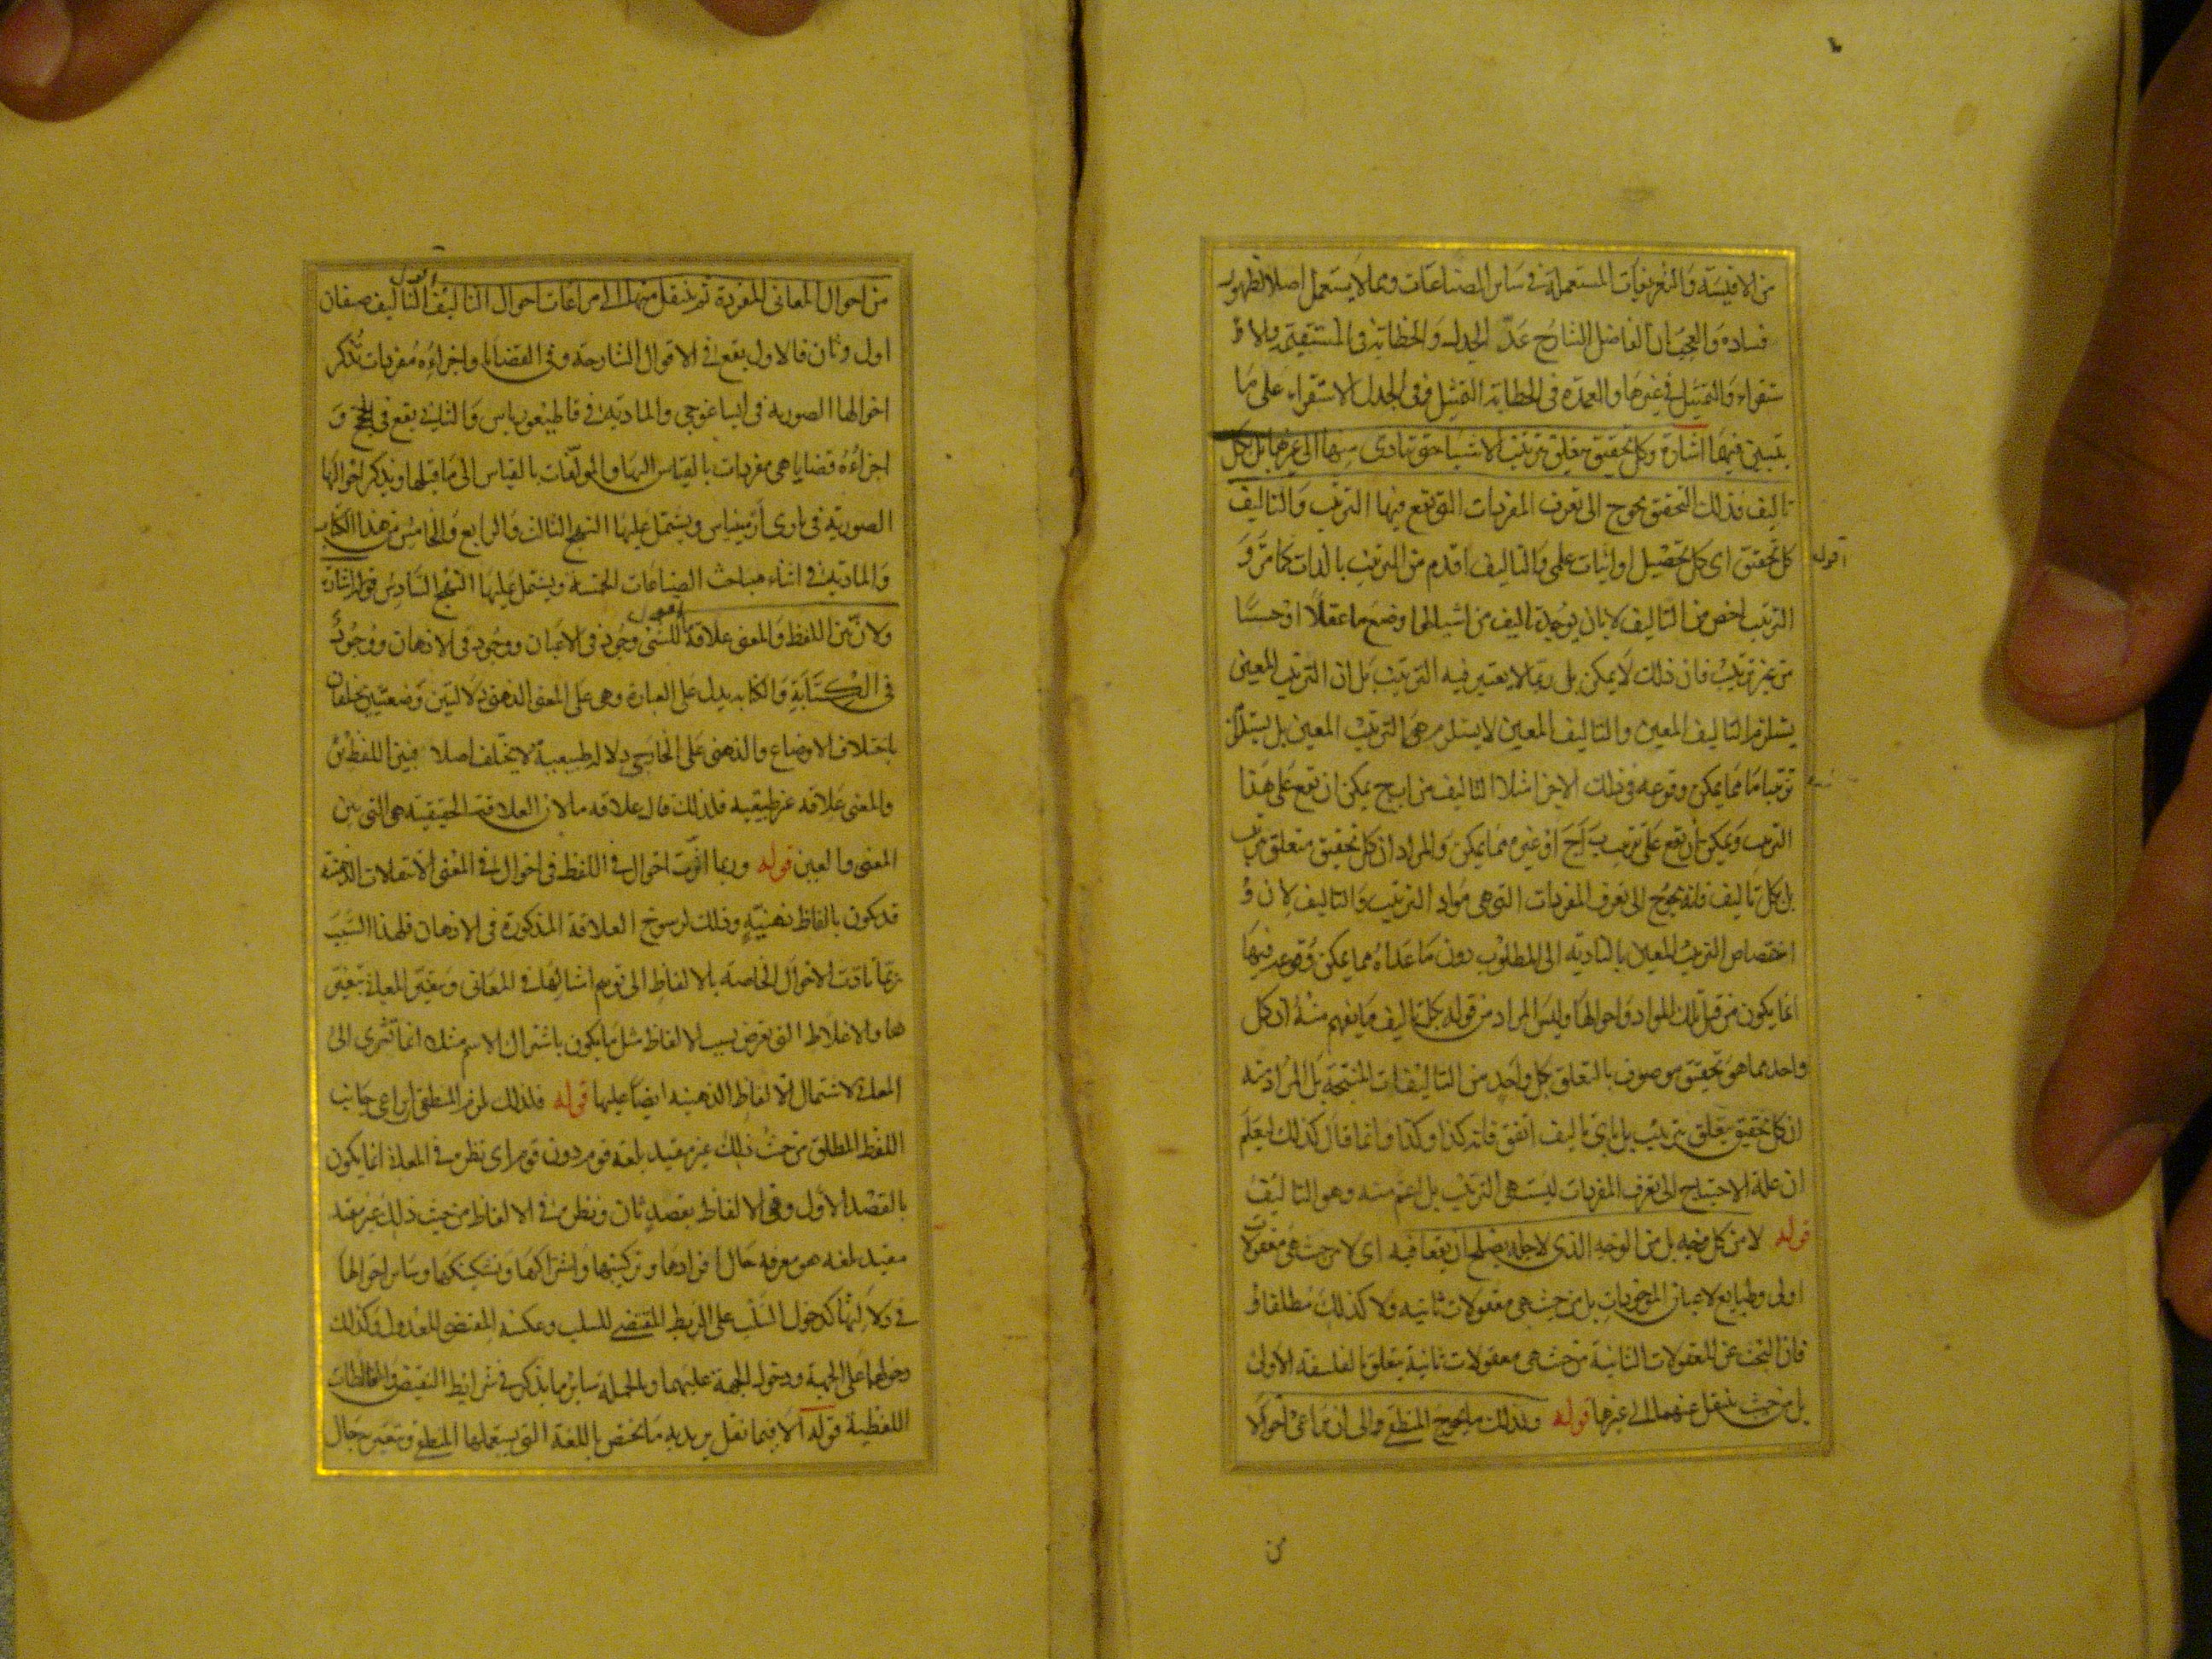 من الاقيسة والتعريفات المستعملة في سائر الصناعات ومما لا يستعمل اصلا لظهور
فساده والعجب ان الفاضل الشارح عدّ الجدل والخطابة في المستقيمة والا
ستقراء والتمثيل في غيرها والعمدة في الخطابة التمثيل وفي الجدل الاستقراء على ما
يتبين فيهما اشارة وكل تحقيق يتعلق بترتيب الاشياء حتى تتادى منها الى غيرها بل بكل
تاليف فذلك التحقيق يحوج الى تعرف المفردات التي يقع فيها الترتيب والتاليف
اقول
كل تحقيق اى كل تحصيل او اثبات علمى والتاليف اقدم من الترتيب بالذات كما مر و
الترتيب اخص من التاليف لا بان يوجد تاليف من اشياء لها وضع ما عقلا او حسا
من غير ترتيب فان ذلك لا يمكن بل ربما لا يعتبر فيه الترتيب بل ان الترتيب المعين
يستلزم التاليف المعين والتاليف المعين لا يستلزم هى الترتيب المعين بل يستلزم
ترتيبا ما مما يمكن وقوعه في ذلك الاجزا مثلا التاليف من ا ب ج يمكن ان يقع على هذا
الترتيب ويمكن ان يقع على ترتيب ب ا ج او غيره مما يمكن والمراد ان كل تحقيق متعلق بترتيب
بل بكل تاليف فانه يحوج الى تعرف المفردات التي هى مواد الترتيب والتاليف لان و
اختصاص الترتيب المعين بالتادية الى المطلوب دون ما عداه مما يمكن وقوعه فيها
انما يكون من قبل تلك المواد واحوالها وليس المراد من قوله بكل تاليف ما يفهم منه ان كل
واحد مما هو تحقيق موصوف بالتعلق بكل واحد من التاليفات المنتجة بل المراد منه
ان كل تحقيق يتعلق بترتيب بل باى تاليف اتفق فانه كذا وكذا وانما قال كذلك ليعلم
ان علة الاحتياج الى تعرف المفردات ليست هى الترتيب بل اعم منه وهو التاليف
قوله لا من كل وجه بل من الوجه الذى لاجله يصلح ان يقعا فيه اى لا من حيث هى معقولات
اولى وطبايع لاعيان الموجودات بل من حيث هى معقولات ثانية ولا كذلك مطلقا و
فان البحث عن المعقولات الثانية من حيث هى معقولات ثانية يتعلق بالفلسفة الاولى
بل من حيث ينتقل عنهما الى غيرها قوله ولذلك ما يحوج المنطقى الى ان يراعى احوالا
من
من احوال المعانى المفردة ثم ينتقل منها الى مراعات احوال التاليف اقول التاليف صنفان
اول وثان فالاول يقع في الاقوال الشارحة وفي القضايا واجزاؤه مفردات تذكر
احوالها الصورية في ايساغوجى والمادية في قاطيغورياس والثانى يقع في الحجج و
اجزاؤه قضايا هى مفردات بالقياس اليها والمولفات بالقياس الى ما قبلها ويذكر احوالها
الصورية في بارى ارمينياس ويشتمل عليها النهج الثالث والرابع والخامس من هذا الكتاب
والمادية في اثناء مباحث الصناعات الخمسة ويشتمل عليها النهج السادس قوله اشارة
ولان بين اللفظ والمعنى علاقة ما اقول للشئ وجود في الاعيان ووجود في الاذهان ووجود
في الكتابة والكتابة يدل على العبارة وهى على المعنى الذهنى دلالتين وضعيتين يختلفان
باختلاف الاوضاع والذهنى على الخارجى دلالة طبيعية لا يختلف اصلا فبين اللفظ
والمعنى علاقة غير طبيعية فلذلك قال علاقة ما لان العلاقة الحقيقية هى التى بين
المعنى والعين قوله وربما اثرت احوال في اللفظ في احوال في المعنى الانتقالات الذهنية
قد يكون بالفاظ ذهنية وذلك لرسوخ العلاقة المذكورة في الاذهان فلهذا السبب
ربما تادت الاحوال الخاصة بالالفاظ الى توهم امثالها في المعانى وتغير المعانى بتغير
ها والاغلاط التى تعرض بسبب الالفاظ مثل ما يكون باشتراك الاسم مثلا انما تسرى الى
المعانى لاشتمال الالفاظ الذهنية ايضا عليها قوله فلذلك لزم المنطقى ان يراعى جانب
اللفظ المطلق من حيث ذلك غير مقيد بلغة قوم دون قوم اى نظره في المعانى انما يكون
بالقصد الاول وفي الالفاظ بقصد ثان ونظره في الالفاظ من حيث ذلك غير مقيد
مقيد بلغة هو معرفة حال افرادها وتركيبها واشتراكها وتشكيكها وسائر احوالها
في دلالتها كدخول السلب على الربط المقتضى للسلب وعكسه المقتضى للعدول وكذلك
دخولهما على الجهة ودخول الجهة عليهما وبالجملة سائر ما يذكر في شرائط النقيض والمغالطات
اللفظية قوله الا فيما نقل يريد به ما يختص باللغة التى يستعملها المنطقى وتغير حال